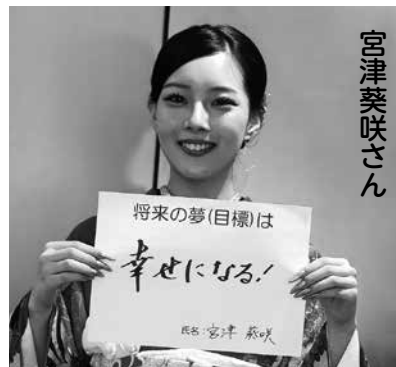 宮津葵咲さん
将来の夢(目標)は
幸せになる!
氏名:宮津 葵咲